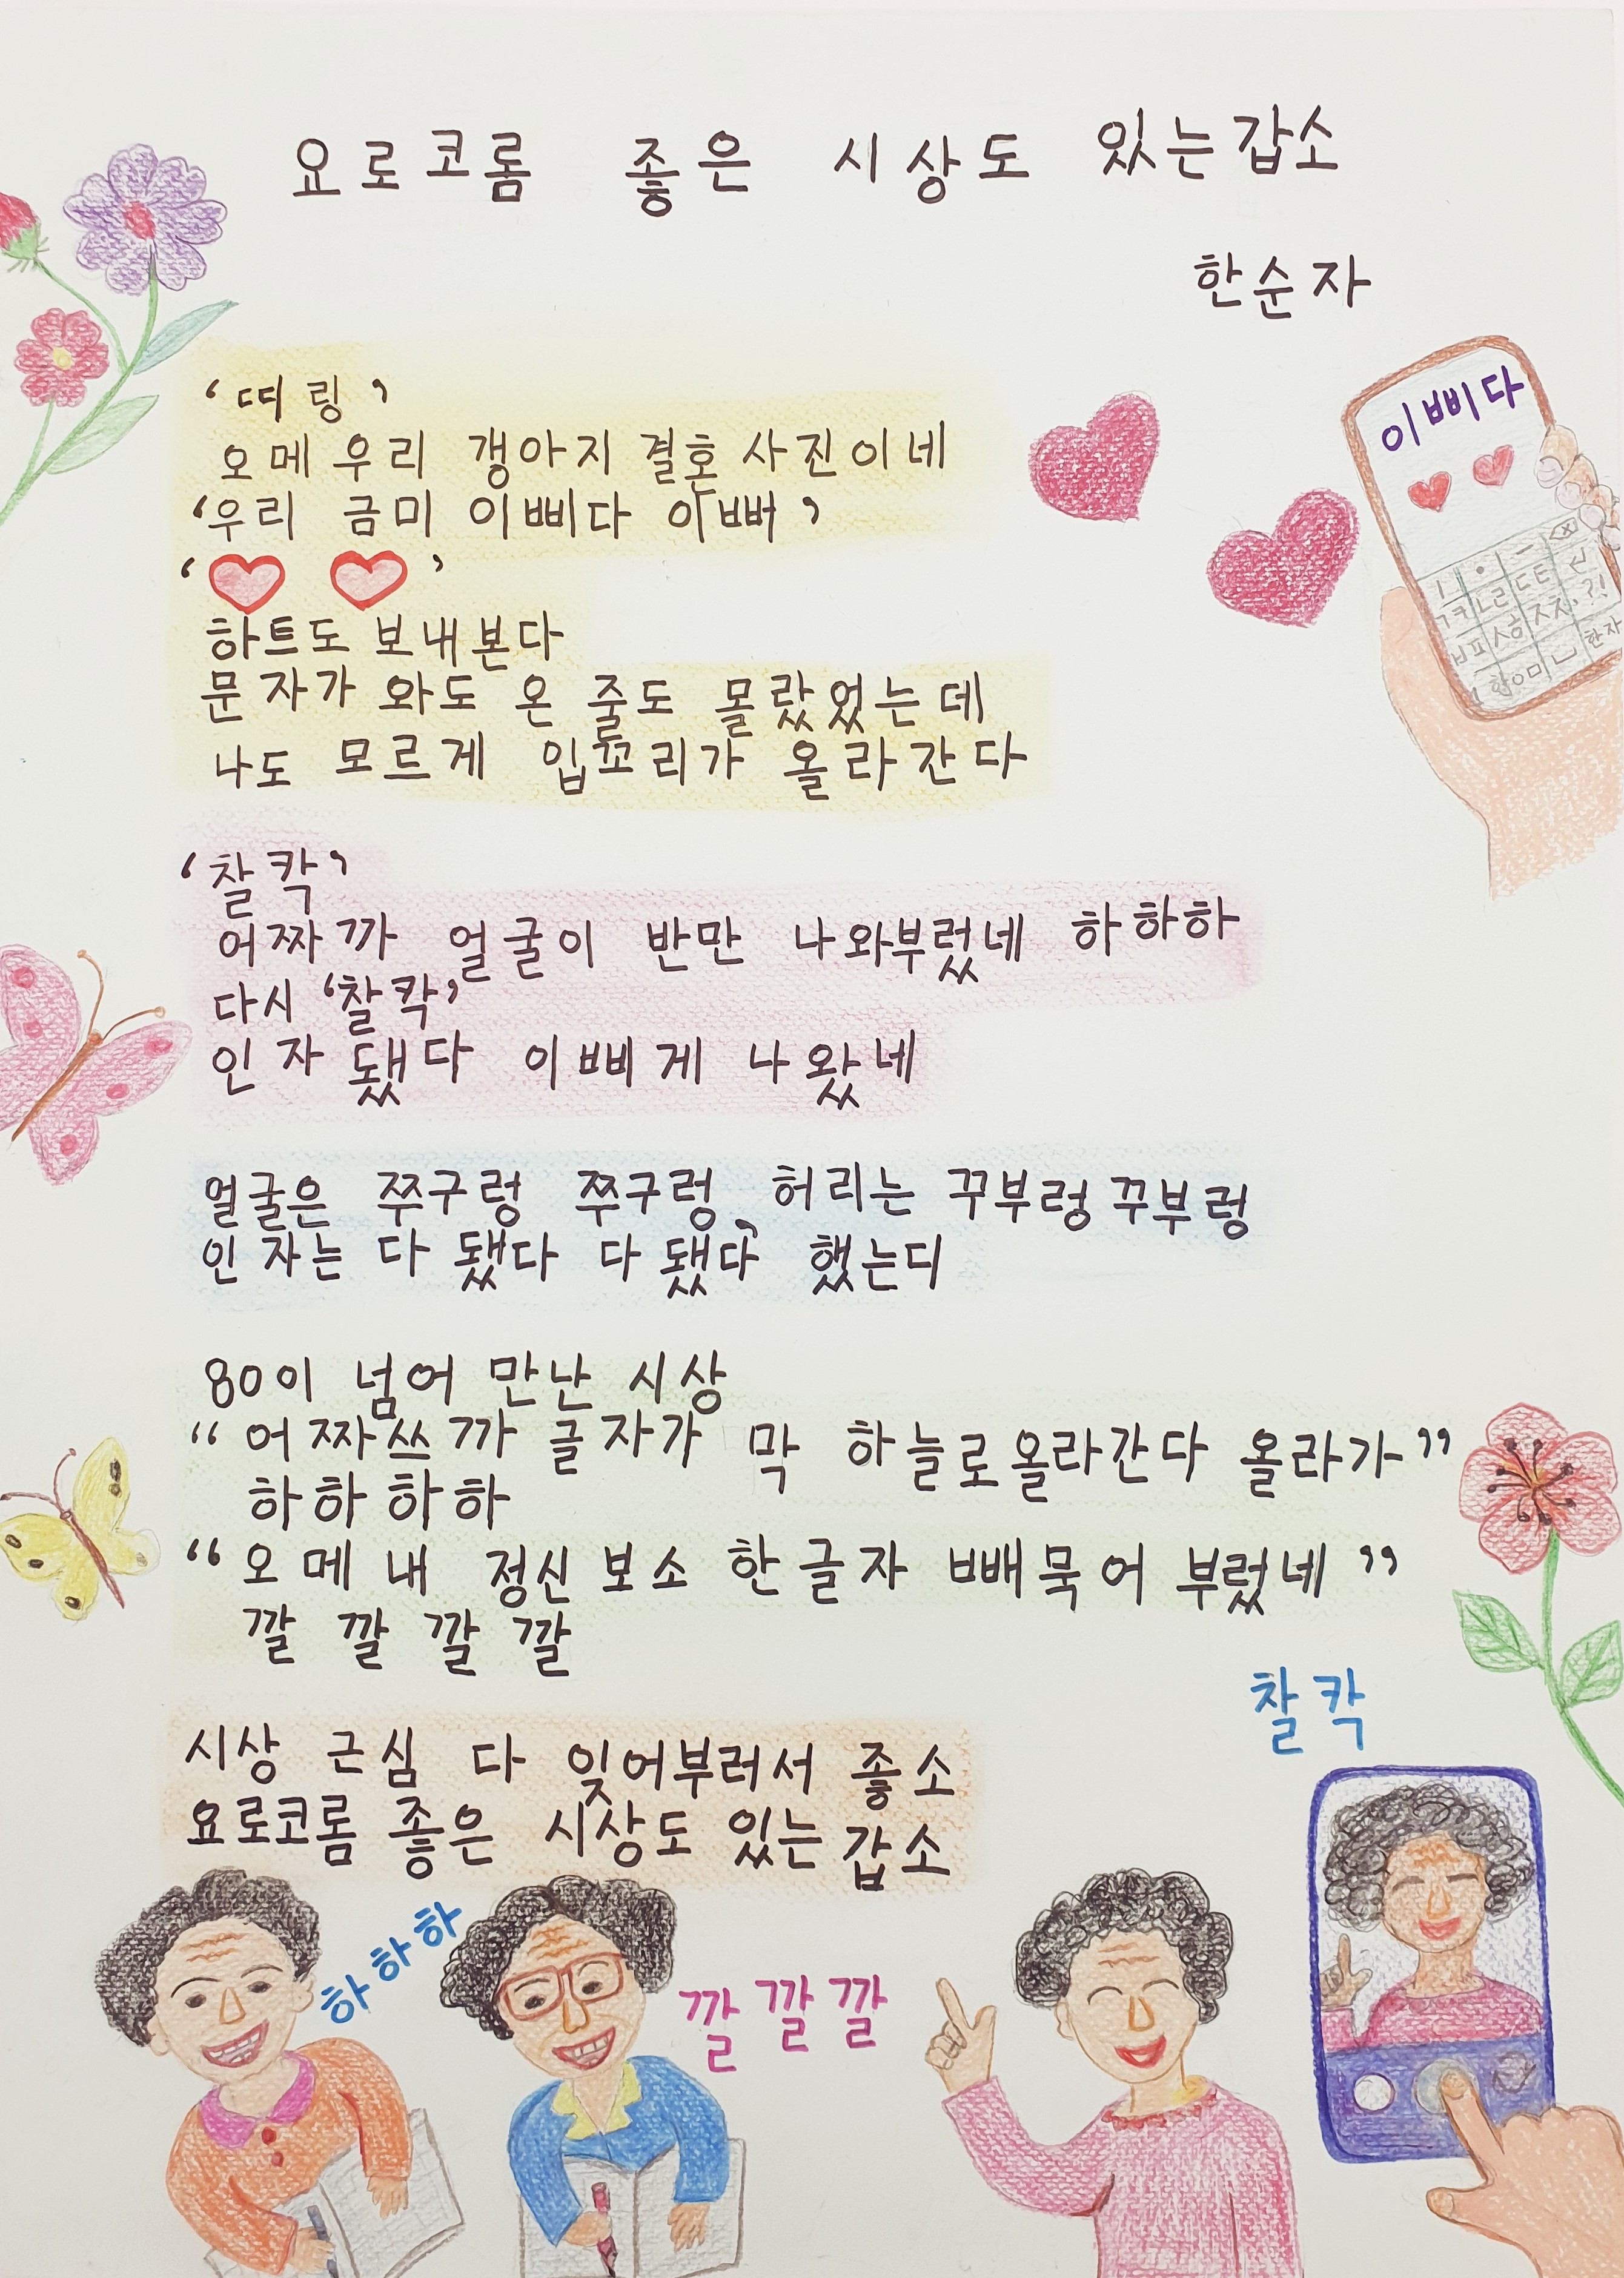 요로코롬 좋은 시상도 있는갑소
한순자
‘띠링’
오메 우리 갱아지 결혼 사진이네
‘우리 금미 이삐다 이뻐’
‘♡ ♡’
하트도 보내본다
문자가 와도 온 줄도 몰랐었는데
나도 모르게 입꼬리가 올라간다
‘찰칵’
어짜까 얼굴이 반만 나와부렀네 하하하
다시 ‘찰칵’
인자 됐다 이삐게 나왔네
얼굴은 쭈구렁 쭈구렁, 허리는 꾸부렁꾸부렁
인자는 다 됐다 다 됐다, 했는디
80이 넘어 만난 시상
“어짜쓰까 글자가 막 하늘로올라간다 올라가”
하하하하
“오메 내 정신보소 한글자 빼묵어 부렀네”
깔 깔 깔 깔
시상 근심 다 잊어부러서 좋소
요로코롬 좋은 시상도 있는갑소
이삐다
ㅣ ㆍ ㅡ
ㄱㅋ ㄴㄹ ㄷㅌ
ㅂㅍ ㅅㅎ ㅈㅊ .?!
한 ㅇㅁ 한자
찰칵
하하하
깔깔깔